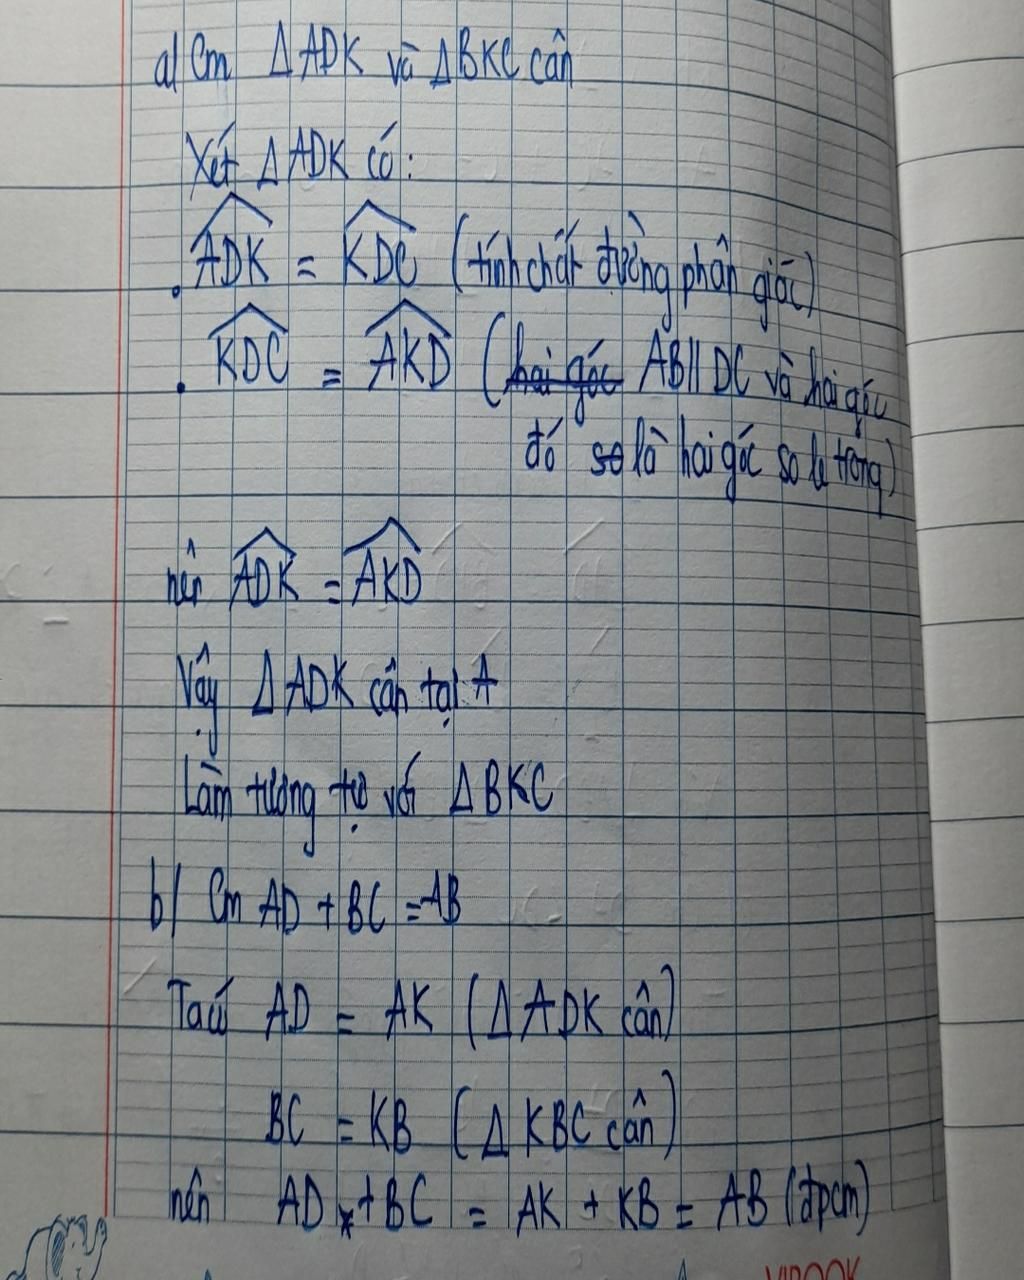 a/ Cm ΔADK và ΔBKC cân
Xét ΔADK có:
. ADK = KDC (tính chất đường phân giác)
. KDC = AKD (hai góc AB // DC và hai góc
đó so là hai góc so le trong)
nên ADK = AKD
Vậy ΔADK cân tại A
Làm tương tự với ΔBKC
b/ Cm AD + BC = AB
Ta có AD = AK (ΔADK cân)
BC = KB (ΔKBC cân)
nên AD + BC = AK + KB = AB (đpcm)
VIBOOK